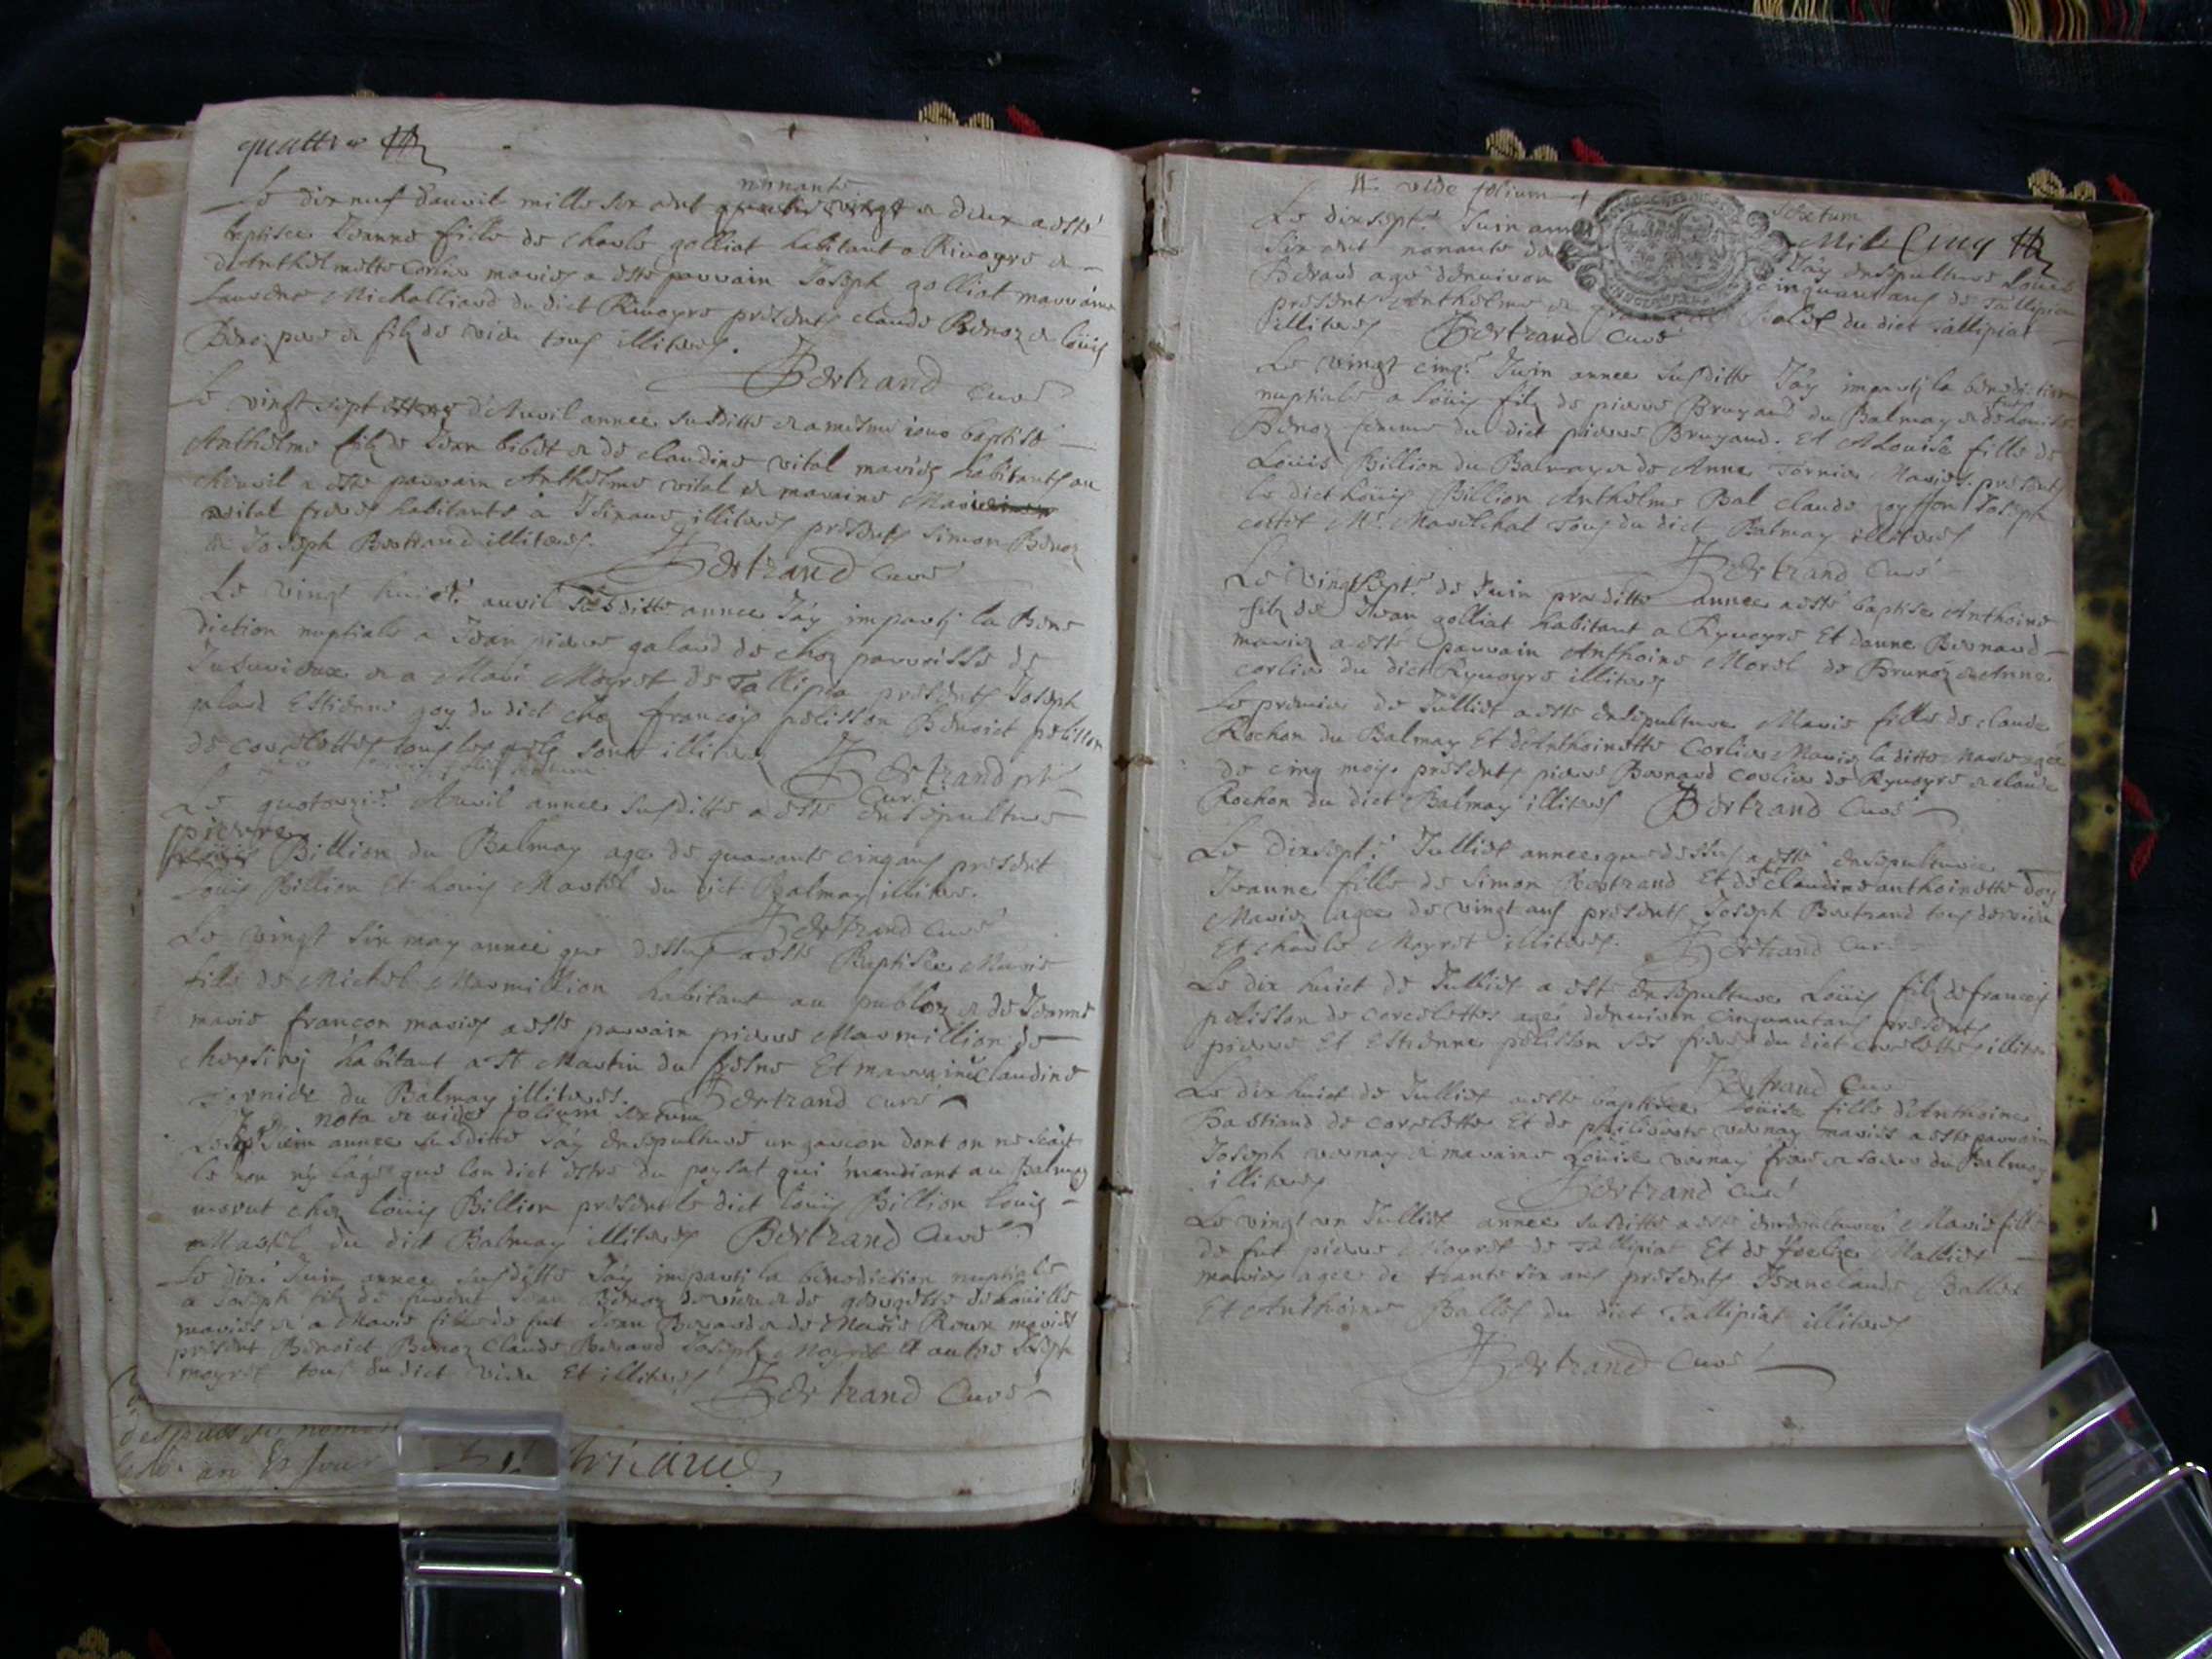 quattre
nonante
Le dix neuf d'auvril mille six cent quatre vingt & deux a esté
baptisee Jeanne fille de Charle golliat habitant a Rivoyre &
d'Anthelmette Corlier mariés a este parrain Joseph golliat marraine
Laurence Michalliard du dict Rivoyre presents claude Benoz & loüis
Benoz pere & filz de vieu tous illiteres.
Bertrand curé
Le vingt sept d'Auvril annee susditte & a mesme iour baptisé
Anthelme filz de Jean bibet & de claudine vital mariés habitants au
chenvil a este parrain Anthelme vital & maraine Marie
vital freres habitants à illiteres presents Simon Benoz
& Joseph Bertrand illiteres.
Bertrand curé
Le vingt huict.e auvril susditte annee J'ay imparti la Bene
diction nuptiale a Jean pierre galand de chez parroisse de
Jusurieux & a Marie Moyret de Tallipia presents Joseph
galand Estienne goy du dict chez francois pelisson Benoict pelisson
de corcelettes tous les quels sont illiteres
Bertrand ptre
curé
Le quatorzie.e Auvril annee susditte a esté ensepulturé
pierre
Billion du Balmay age de quarante cinq ans present
Loüis Billion Et Louis Martel du dict Balmay illiteres.
Bertrand curé
Le vingt six may annee que dessus a este Baptisee Marie
fille de Michel Marmillion habitant au publoz & de Jeanne
marie francon mariés a este parrain pierre Marmillion de
habitant a St Martin du fresne Et marraine Claudine
Tornier du Balmay illiteres.
Bertrand curé
nota & vide folium sextum
Le Juin annee susditte J'ay ensepulturé un garcon dont on ne scayt
le nom ny l'age que l'on dict estre du paysat qui mandiant au Balmay
morut chez loüis Billion present le dict loüis Billion louis
Martel du dict Balmay illiteres Bertrand curé
Le dix.e Juin annee susditte J'ay imparti la benediction nuptiale
a Joseph filz de Jean Benoz de vieu & de georgette
mariés & a Marie fille de fut Jean Berard & de Marie Roux mariés
present Benoict Benoz Claude Berard Joseph Moyret Et autre Joseph
moyret tous du dict vieu Et illiteres
Bertrand Curé
vide folium sextum
Mile Cinq
Le dixsept.e Juin an
six cent nonante de J'ay ensepulturé Louis
Berard agé denviron cinquant ans de Tallipia
presents Anthelme & Balet du dict Tallipiat
illiteres Bertrand curé
Le vingt cinq.e Juin annee susditte J'ay imparti la benediction
nuptiale a loüis filz de pierre Brugand du Balmay & de Louise
Benoz femme du dict pierre Brugand. Et A Louise fille de
Loüis Billion du Balmay & de Anne Tornier Mariés presents
le dict Loüis Billion Anthelme Bal claude goyffon Joseph
cottet Mr. Mareschal tous du dict Balmay illiteres
Bertrand curé
Le vingtsept.e de Juin praeditte annee a esté baptise Anthoine
filz de Jean golliat habitant a Ryvoyre Et d'anne Bernard
mariés a este parrain Anthoine Morel de Brunoz & Anne
corlier du dict Ryvoyre illiteres
Le premier de Julliet a este ensepulturee Marie fille de claude
Rochon du Balmay Et d'Anthoinette Corlier Mariés la ditte Marie agée
de cinq mois. presents pierre Bernard corlier de Ryvoyre & claude
Rochon du dict Balmay illiteres Bertrand Curé
Le dixsept.e Julliet annee que dessus a esté ensepulturee
Jeanne fille de Simon Bertrand Et de claudine anthoinette goy
Mariés agee de vingt ans presents Joseph Bertrand tous de vieu
Et charle Moyret illiteres. Bertrand curé
Le dix huict de Julliet a este ensepulturé Loüis filz de francois
pelisson de corcelettes agé denviron cinquant ans presents
pierre Et Estienne pelisson ses freres du dict corcelettes illiteres
Bertrand Curé
Le dix huict de Julliet a esté baptisee Loüise fille d'Anthoine
Bastiand de corcelette Et de philiberte vernay mariés a este parrain
Joseph vernay & maraine Loüise vernay frere & soeur du Balmay
illiteres
Bertrand Curé
Le vingt un Julliet annee susditte a esté ensepulturee Marie fille
de fut pierre Moyret de Tallipiat Et de Maillet
mariés agee de trante six ans presents Jean claude Ballet
Et Anthoine Ballet du dict Tallipiat illiteres
Bertrand Curé